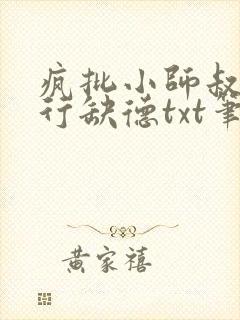 疯批小師叔
行缺德txt筆
黄家禧